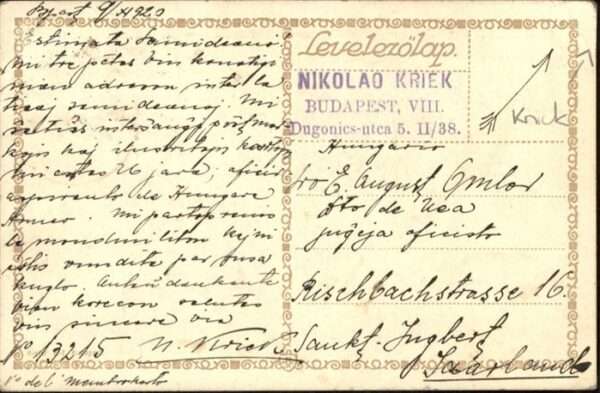 Bpest 9/XI 920
Estimata Samideano!
mi tre petas vin konatigi
mian adreson inter la
tieaj samideanoj. Mi
ŝatus interŝanĝi poŝtmar
kojn kaj ilustritajn kartojn
mi estas 26 jara, oficir
aspiranto de Hungara
Armeo. Mi partoprenis
la mondmiliton kaj mi
estis vundita per rusa
kuglo. Antaŭdankante
vian korecon salutas
vin sincere via
No 13215 N. Kriek
No de l' membrokarto
Levelezőlap.
NIKOLAO KRIEK
BUDAPEST, VIII.
Dugonics-utca 5. II/38.
Hungario
Kriek
E. August
Dto de Uea
juĝeja oficisto
Rischbachstrasse 16
Sankt-Ingbert
Saarland